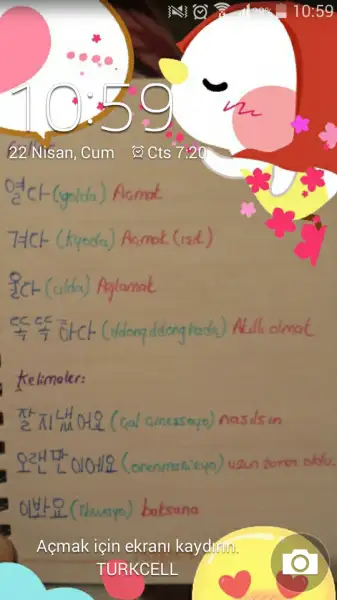 29%
10:59
10:59
22 Nisan, Cum Cts 7:20
열다 (yolda) Açmak
켜다 (kyoda) Açmak (ışık)
울다 (ulda) Ağlamak
똑똑하다 (ddongddonghada) Akıllı olmak
Kelimeler:
잘 지냈어요 (cal cinessoyo) nasılsın
오랜만이에요 (orenmanieyo) uzun zaman oldu.
이봐요 (ibwayo) baksana
Açmak için ekranı kaydırın.
TURKCELL